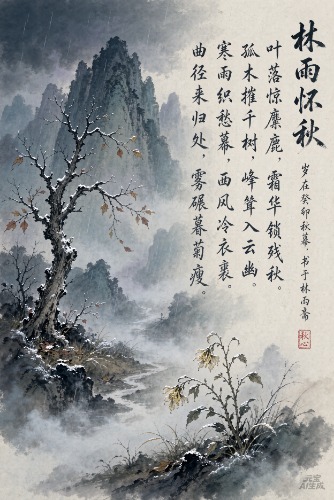 林雨怀秋
叶落惊麋鹿，霜华锁残秋。
孤木摧千树，峰耸入云幽。
寒雨织愁幕，西风冷衣裘。
曲径来归处，雾碾暮菊瘦。
岁在癸卯秋暮，书于林雨斋
秋心
元宝
AI生成